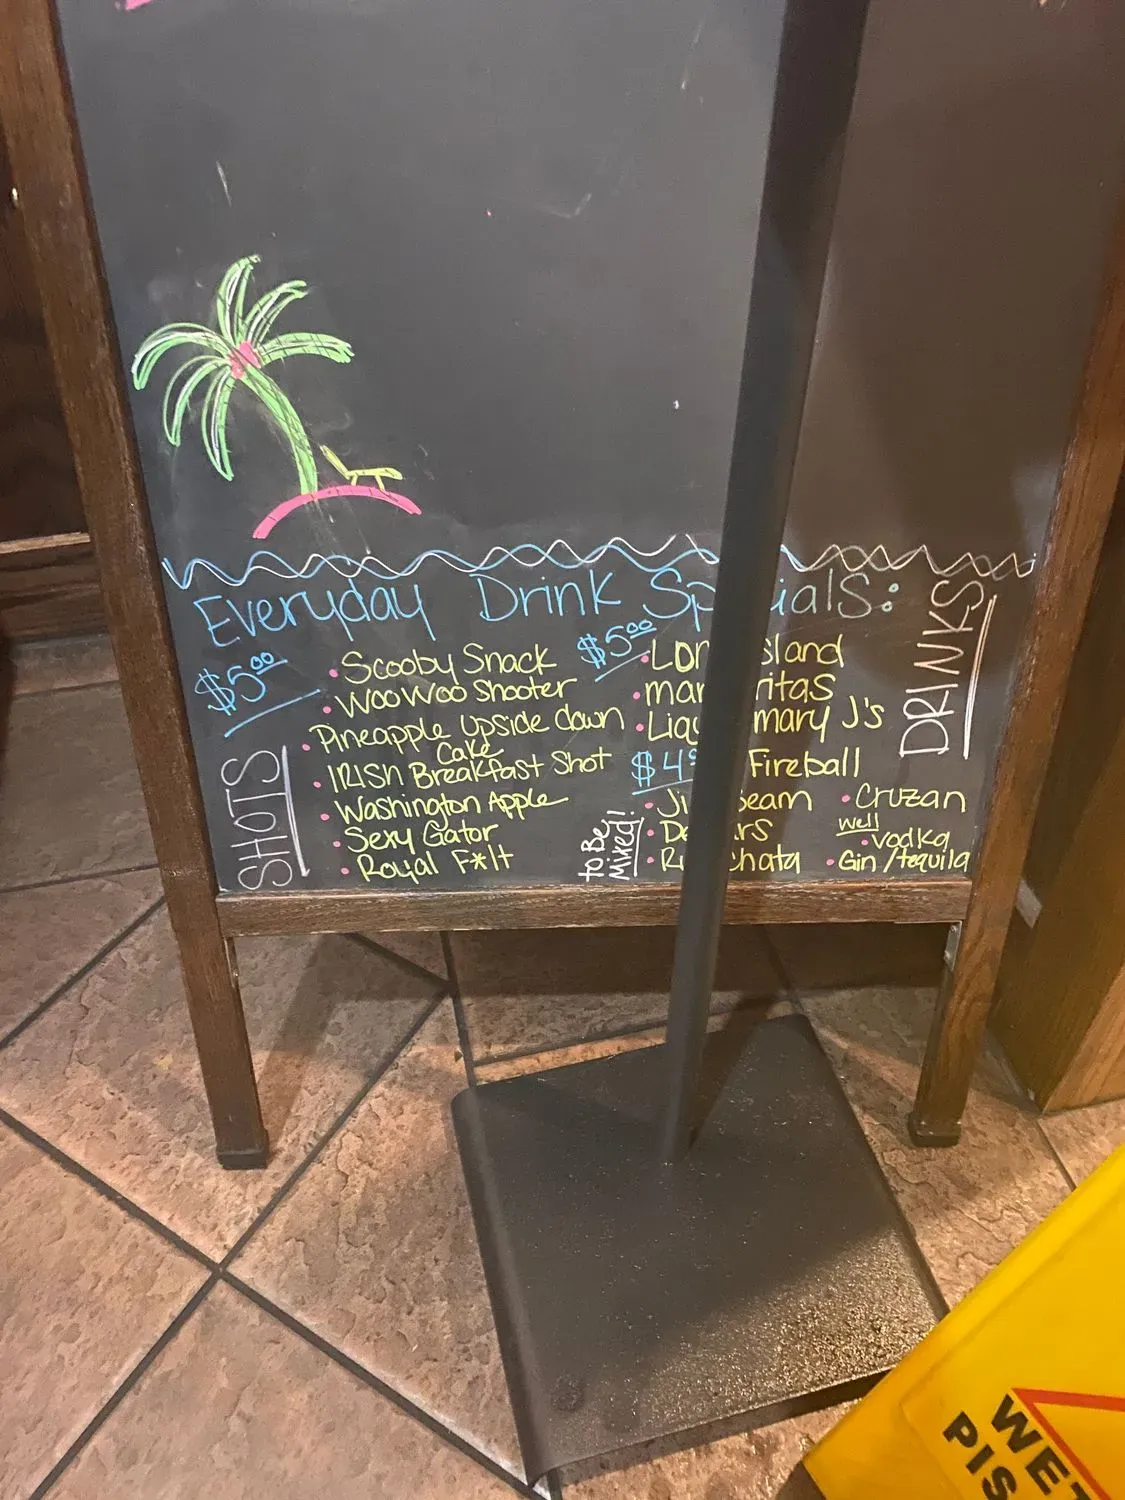 Everyday Drink Sp ials:
$5.00
SHOTS
• Scooby Snack
• Woo Woo Shooter
• Pineapple Upside down
Cake
• IRISH Breakfast Shot
• Washington Apple
• Sexy Gator
• Royal F*!t
$5.00
DRINKS
• Lon sland
• mar ritas
• Liqu mary J's
$4 Fireball
to Be
Mixed!
• Ji Beam • Cruzan
• De rs well • vodka
• R chata • Gin / tequila
WET
PIS